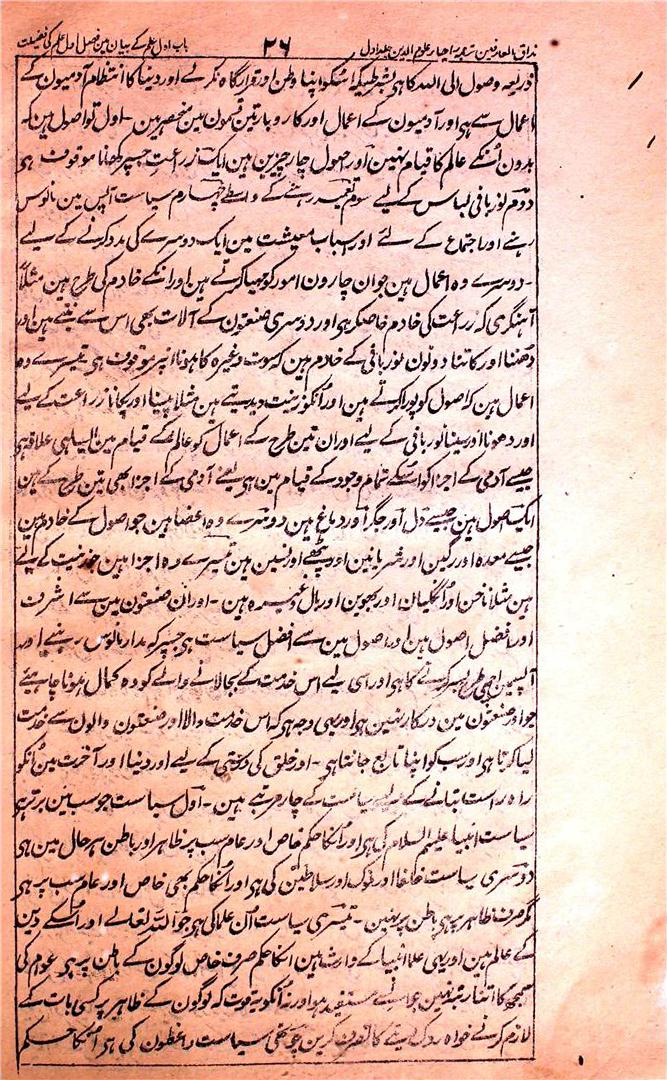 باب اول علم کے بیان مین فصل اول علم کی فضیلت ۲۶ مذاق العارفین ترجمہ احیاء علوم الدین جلد اول
ذریعہ وصول الی اللہ کا ہی بشرطیکہ اسکو اپنا وطن اور قرارگاہ نکرلے اور دنیا کا انتظام آدمیون کے
اعمال سے ہی اور آدمیون کے اعمال اور کاروبار تین قسمون مین منحصر ہین ۔ اول تو اصول ہین کہ
بدون اُنکے عالم کا قیام نہین اور اصول چار چیزین ہین ایک زراعت جسپر کھانا موقوف ہی
دوم نوربافی لباس کے لیے سوم تعمیر رہنے کے واسطے چہارم سیاست آپس مین مانوس
رہنے اور اجتماع کے لئے اور اسباب معیشت مین ایک دوسرے کی مدد کرنے کے لیے
۔ دوسرے وہ اعمال ہین جو ان چارون امور کو مہیا کرتے ہین اور انکے خادم کی طرح ہین مثلاً
آہنگری کہ زراعت کی خادم خاصکر ہی اور دوسری صنعتون کے آلات بھی اس سے بنتے ہین اور
دھننا اور کاتنا دونون نوربافی کے خادم ہین کہ سوت وغیرہ کا ہونا انپر موقوف ہی تیسرے وہ
اعمال ہین کہ اصول کو پورا کرتے ہین اور اُنکو زینت دیدیتے ہین مثلا پیسنا اور پکانا زراعت کے لیے
اور دھونا اور سینا نوربافی کے لیے اور ان تین طرح کے اعمال کو عالم کے قیام مین ایسا ہی علاقہ ہی
جیسے آدمی کے اجزا کو اسکے تمام وجود کے قیام مین ہی یعنے آدمی کے اجزا بھی تین طرح کے ہین
ایک اصول ہین جیسے دل اور جگر اور دماغ ہین دوسرے وہ اعضا ہین جو اصول کے خادم ہین
جیسے معدہ اور رگین اور شریانین اور پٹھے اور نسین ہین تیسرے وہ اجزا ہین جو زینت کے لیے
ہین مثلا ناخن اور اُنگلیان اور بھوین اور بال وغیرہ ہین ۔ اور ان صنعتون مین سے اشرف
اور افضل اصول ہین اور اصول مین سے افضل سیاست ہی جسپر کہ مدار مانوس رہنے اور
آپسمین اچھی طرح بسر کرنے کا ہی اور اسی لیے اس خدمت کے بجا لانے والے کو وہ کمال ہونا چاہیئے
جو اور صنعتون مین درکار نہین ہی اور یہی وجہ ہی کہ اس خدمت والا اور صنعتون والون سے خدمت
لیا کرتا ہی اور سب کو اپنا تابع جانتا ہی ۔ اور خلق کی درستی کے لیے اور دنیا اور آخرت مین اُنکو
راہ راست بتانے کے لیے سیاست کے چار مرتبے ہین ۔ اول سیاست جو سب مین برتر ہی
سیاست انبیا علیہم السلام کی ہی اور اُنکا حکم خاص اور عام سب پر ظاہر اور باطن ہر حال مین ہی
دوسری سیاست خلفا اور ملوک اور سلاطین کی ہی اور اُنکا حکم بھی خاص اور عام سب پر ہی
مگر صرف ظاہر پر ہی باطن پر نہین ۔ تیسری سیاست اُن علما کی ہی جو اللہ تعالے اور اُسکے دین
کے عالم ہین اور یہی علما انبیا کے وارث ہین انکا حکم صرف خاص لوگون کے باطن پر ہی عوام کی
سمجھ کا اتنا رتبہ نہین جو اُنسے مستفید ہو اور نہ اُنکو یہ قوت کہ لوگون کے ظاہر پر کسی بات کے
لازم کرنے خواہ روک دینے کا تصرف کرین چوتھی سیاست واعظون کی ہی اُنکا حکم